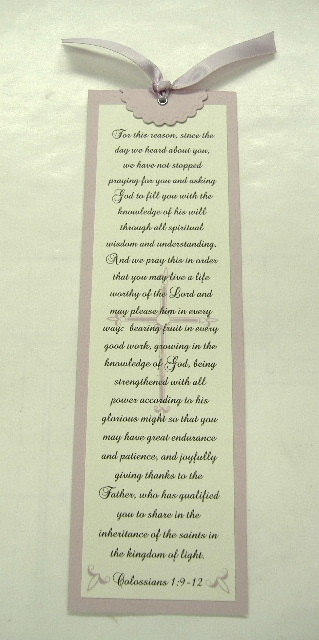 For this reason, since the
day we heard about you,
we have not stopped
praying for you and asking
God to fill you with the
knowledge of his will
through all spiritual
wisdom and understanding.
And we pray this in order
that you may live a life
worthy of the Lord and
may please him in every
way: bearing fruit in every
good work, growing in the
knowledge of God, being
strengthened with all
power according to his
glorious might so that you
may have great endurance
and patience, and joyfully
giving thanks to the
Father, who has qualified
you to share in the
inheritance of the saints in
the kingdom of light.
Colossians 1:9-12